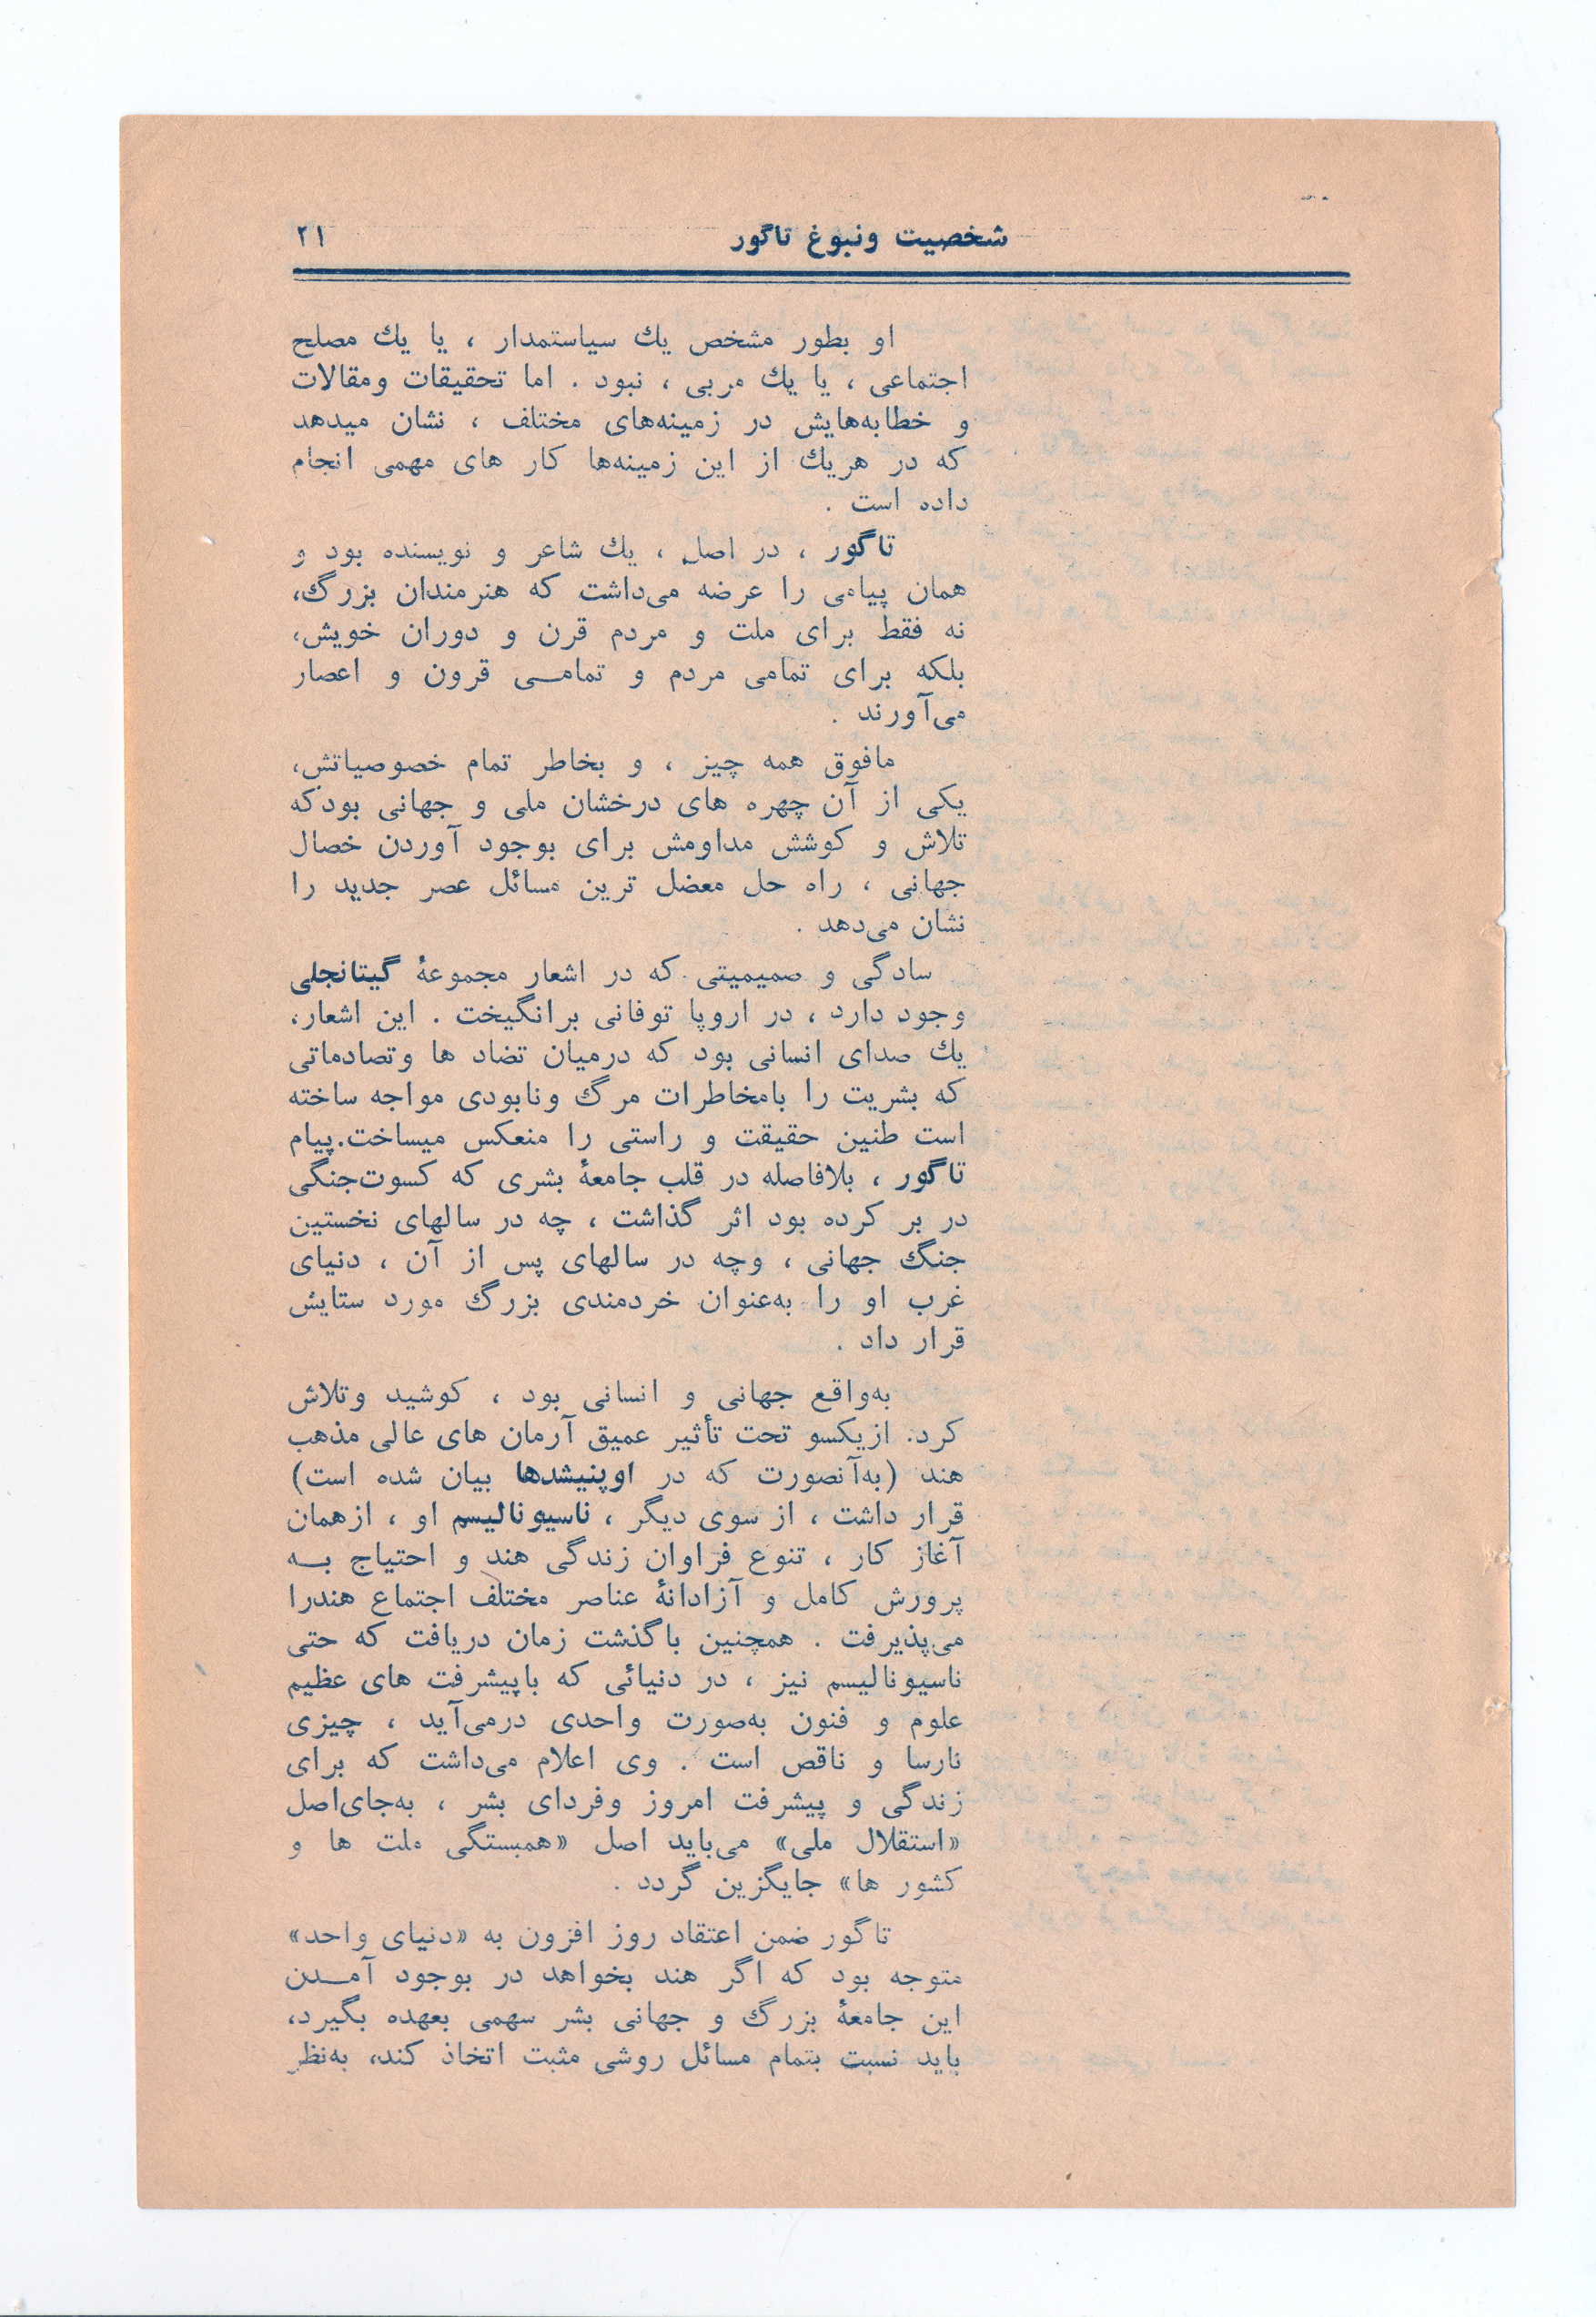 شخصیت ونبوغ تاگور ۲۱
او بطور مشخص یك سیاستمدار ، یا یك مصلح
اجتماعی ، یا یك مربی ، نبود . اما تحقیقات ومقالات
و خطابه‌هایش در زمینه‌های مختلف ، نشان میدهد
که در هریك از این زمینه‌ها کار های مهمی انجام
داده است .
تاگور ، در اصل ، یك شاعر و نویسنده بود و
همان پیامی را عرضه می‌داشت که هنرمندان بزرگ،
نه فقط برای ملت و مردم قرن و دوران خویش،
بلکه برای تمامی مردم و تمامـی قرون و اعصار
می‌آورند .
مافوق همه چیز ، و بخاطر تمام خصوصیاتش،
یکی از آن چهره های درخشان ملی و جهانی بودکه
تلاش و کوشش مداومش برای بوجود آوردن خصال
جهانی ، راه حل معضل ترین مسائل عصر جدید را
نشان می‌دهد .
سادگی و صمیمیتی که در اشعار مجموعهٔ گیتانجلی
وجود دارد ، در اروپا توفانی برانگیخت . این اشعار،
یك صدای انسانی بود که درمیان تضاد ها وتصادماتی
که بشریت را بامخاطرات مرگ ونابودی مواجه ساخته
است طنین حقیقت و راستی را منعکس میساخت.پیام
تاگور ، بلافاصله در قلب جامعهٔ بشری که کسوت‌جنگی
در بر کرده بود اثر گذاشت ، چه در سالهای نخستین
جنگ جهانی ، وچه در سالهای پس از آن ، دنیای
غرب او را به‌عنوان خردمندی بزرگ مورد ستایش
قرار داد .
به‌واقع جهانی و انسانی بود ، کوشید وتلاش
کرد. ازیکسو تحت تأثیر عمیق آرمان های عالی مذهب
هند (به‌آنصورت که در اوپنیشدها بیان شده است)
قرار داشت ، از سوی دیگر ، ناسیونالیسم او ، ازهمان
آغاز کار ، تنوع فراوان زندگی هند و احتیاج بـه
پرورش کامل و آزادانهٔ عناصر مختلف اجتماع هندرا
می‌پذیرفت . همچنین باگذشت زمان دریافت که حتی
ناسیونالیسم نیز ، در دنیائی که باپیشرفت های عظیم
علوم و فنون به‌صورت واحدی درمی‌آید ، چیزی
نارسا و ناقص است . وی اعلام می‌داشت که برای
زندگی و پیشرفت امروز وفردای بشر ، به‌جای‌اصل
«استقلال ملی» می‌باید اصل «همبستگی ملت ها و
کشور ها» جایگزین گردد .
تاگور ضمن اعتقاد روز افزون به «دنیای واحد»
متوجه بود که اگر هند بخواهد در بوجود آمـدن
این جامعهٔ بزرگ و جهانی بشر سهمی بعهده بگیرد،
باید نسبت بتمام مسائل روشی مثبت اتخاذ کند، به‌نظر